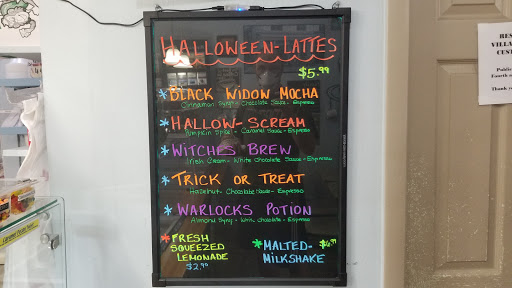 HALLOWEEN-LATTES
$5.99
*BLACK WIDOW MOCHA
Cinnamon Syrup - Chocolate Sauce - Espresso
*HALLOW-SCREAM
Pumpkin Spice - Caramel Sauce - Espresso
*WITCHES BREW
Irish Cream - White Chocolate Sauce - Espresso
*TRICK OR TREAT
Hazelnut - Chocolate Sauce - Espresso
*WARLOCKS POTION
Almond Syrup - White Chocolate - Espresso
*FRESH
SQUEEZED
LEMONADE
$2.99
*MALTED- $6.99
MILKSHAKE